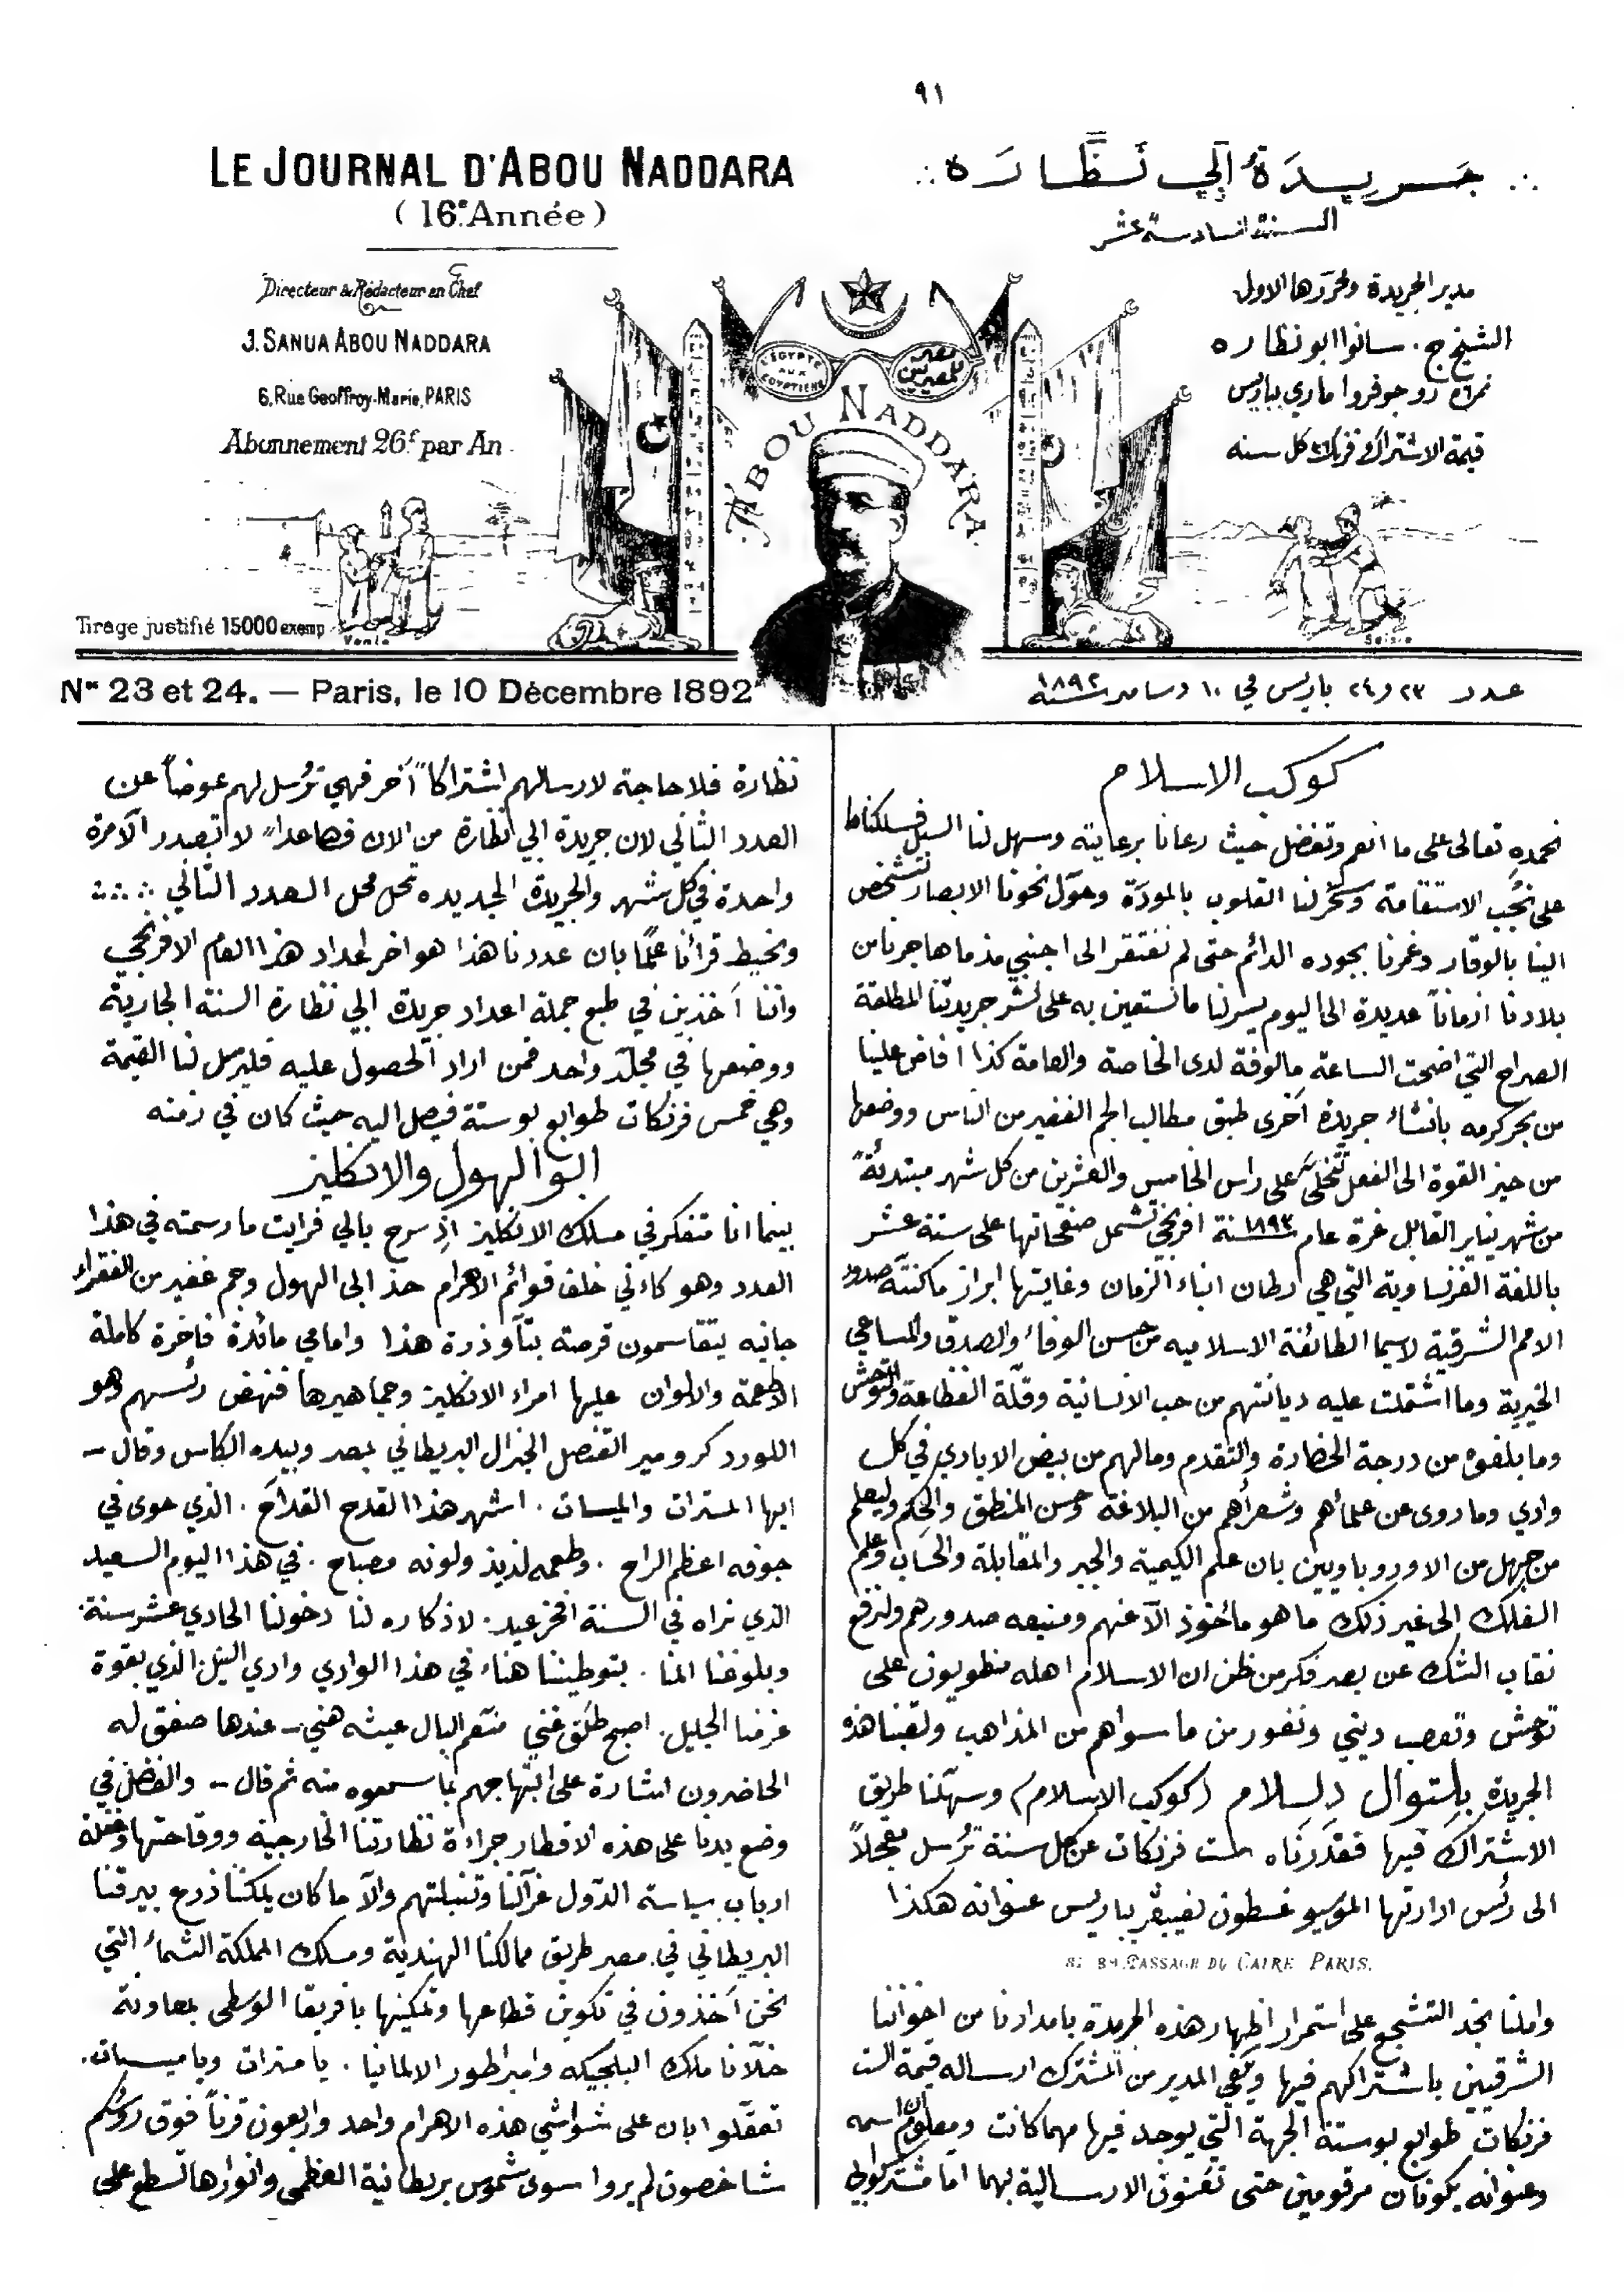 ٩١
LE JOURNAL D'ABOU NADDARA
(16e Année)
Directeur & Rédacteur en Chef
J. SANUA ABOU NADDARA
6, Rue Geoffroy-Marie, PARIS
Abonnement 26f par An
Tirage justifié 15000 exemp
∴ جَـرِيدَةُ ابِي نَظَّارَه ∴
السنة السادسة عشر
مدير الجريدة ومحررها الاول
الشيخ ج. سانوا ابو نظاره
نمرة ٦ رو جوفروا ماري بباريس
قيمة الاشتراك فرنك كل سنه
L'EGYPTE AUX EGYPTIENS
مصر للمصريين
ABOU NADDARA
Nos 23 et 24. — Paris, le 10 Décembre 1892
عدد ٢٣ و٢٤ باريس في ١٠ دسامبر سنة ١٨٩٢
كوكب الاسلام
نحمده تعالى على ما انعم وتفضل حيث رعانا برعايته وسهل لنا السبل فسلكناها
على نُجُب الاستقامة وسخّر لنا القلوب بالمودّة وحوّل نحونا الابصار لتشخص
الينا بالوقار وغمرنا بجوده الدائم حتى لم نفتقر الى اجنبي مذ ما هاجرنا من
بلادنا ازماناً عديدة الى اليوم يسر لنا ما نستعين به على نشر جريدتنا المطلقة
الصراح التي اضحت الساعة مالوفة لدى الخاصة والعامة كذا افاض علينا
من بحر كرمه بانشاء جريدة اخرى طبق مطالب الجم الغفير من الناس ووضعها
من حيز القوة الى الفعل تتجلى على راس الخامس والعشرين من كل شهر مبتدئةً
من شهر يناير القابل غرة عام ١٨٩٣ سنة افرنجي تشمل صفحاتها على ستة عشر
باللغة الفرنساوية التي هي ارطان ابناء الزمان وغايتها ابراز ما كنّته صدور
الامم الشرقية لاسيما الطائفة الاسلاميه من حسن الوفاء والصدق والمساعي
الخيرية وما اشتملت عليه ديانتهم من حب الانسانية وقلّة الفظاعة والتوحش
وما بلغوه من درجة الحضارة والتقدم وما لهم من بيض الايادي في كل
وادي وما روى عن علمائهم وشعرائهم من البلاغة وحسن المنطق والحكم وليعلم
من جهل من الاوروباويين بان علم الكيمية والجبر والمقابلة والحساب وعلم
الفلك الى غير ذلك ما هو ماخوذ الا عنهم ومنبعه صدورهم ولنرفع
نقاب الشك عن بصر فكر من ظن ان الاسلام اهله منطويون على
توحش وتعصب ديني ونفور من ما سواهم من المذاهب ولقبنا هذه
الجريدة بلتوال دلسلام (كوكب الاسلام) وسهلنا طريق
الاشتراك فيها فقدّرناه ست فرنكات عن كل سنة تُرسل معجّلاً
الى رئس ادارتها الموسيو غسطون لفيبفر بباريس عنوانه هكذا
PASSAGE DU CAIRE PARIS.
واملنا نجد التشجيع على استمرار اظهار هذه الجريدة بامدادنا من اخواننا
الشرقيين باشتراكهم فيها ويكفي المدير من المشترك ارساله قيمة الست
فرنكات طوابع بوستة الجهة التي يوجد فيها مهما كانت ومعلوم ان اسمه
وعنوانه يكونان مرقومين حتى تُعنون الارسالية بهما اما مشتركوابي
نظارة فلا حاجة لارسالهم اشتراكاً آخر فهي تُرسل لهم عوضاً عن
العدد الثاني لان جريدة ابي نظارة من الان فصاعداً لا تصدر الا مرة
واحدة في كل شهر والجريدة الجديده تحل محل العدد التالي ∴∴
ونحيط قرائنا علمًا بان عددنا هذا هو اخر اعداد هذا العام الافرنجي
واننا آخذين في طبع جملة اعداد جريدة ابي نظارة السنة الجارية
ووضعها في مجلّد واحد فمن اراد الحصول عليه فليرسل لنا القيمة
وهي خمس فرنكات طوابع بوستة فيصل اليه حيث كان في زمنه
ابو الهول والانكليز
بينما انا متفكر في مسلك الانكليز اذ سرح بالي فرايت ما رسمته في هذا
العدد وهو كاني خلف قوائم الاهرام حذ ابى الهول وجم غفير من الفقراء
جانبه يتقاسمون قرصة بتاو ذرة هذا وامامي مائدة فاخرة كاملة
الاطعمة والالوان عليها امراء الانكليز وجماهيرها فنهض رئسهم وهو
اللورد كرومير القنصل الجنرال البريطاني بمصر وبيده الكاس وقال –
ايها المسترات والميسات . اشهر هذا القدح القداح . الذي حوى في
جوفه اعظم الراح . وطعمه لذيذ ولونه مصباح . في هذا اليوم السعيد
الذي نراه في السنة افخر عيد . لاذكاره لنا دخولنا الحادي عشر سنة .
وبلوغنا المنا . بتوطيننا هناء في هذا الوادي وادي النيل الذي بقوة
عزمنا الجليل . اصبح طلق غني منعم البال عيشه هني – عندها صفق له
الحاضرون اشارة على ابتهاجهم بما سمعوه منه ثم قال – والفضل في
وضع يدنا على هذه الاقطار جراءة نظارتنا الخارجية ووقاحتها وغفلة
ارباب سياسة الدول عزآلنا وتنبلتهم والا ما كان يمكننا زرع بيرقنا
البريطاني في مصر طريق ممالكنا الهندية ومسلك المملكة الشماء التي
نحن آخذون في تكوين قطاعها وتمكينها بافريقا الوسطى بمعاونة
خلّانا ملك البلجيكه وامبراطور الالمانيا . يا مسترات ويا ميسات .
تعقّلوا ابان على شواشي هذه الاهرام واحد واربعون قرناً فوق روئسكم
شاخصون لم يروا سوى شموس بريطانية العظمى وانوارها تسطع على